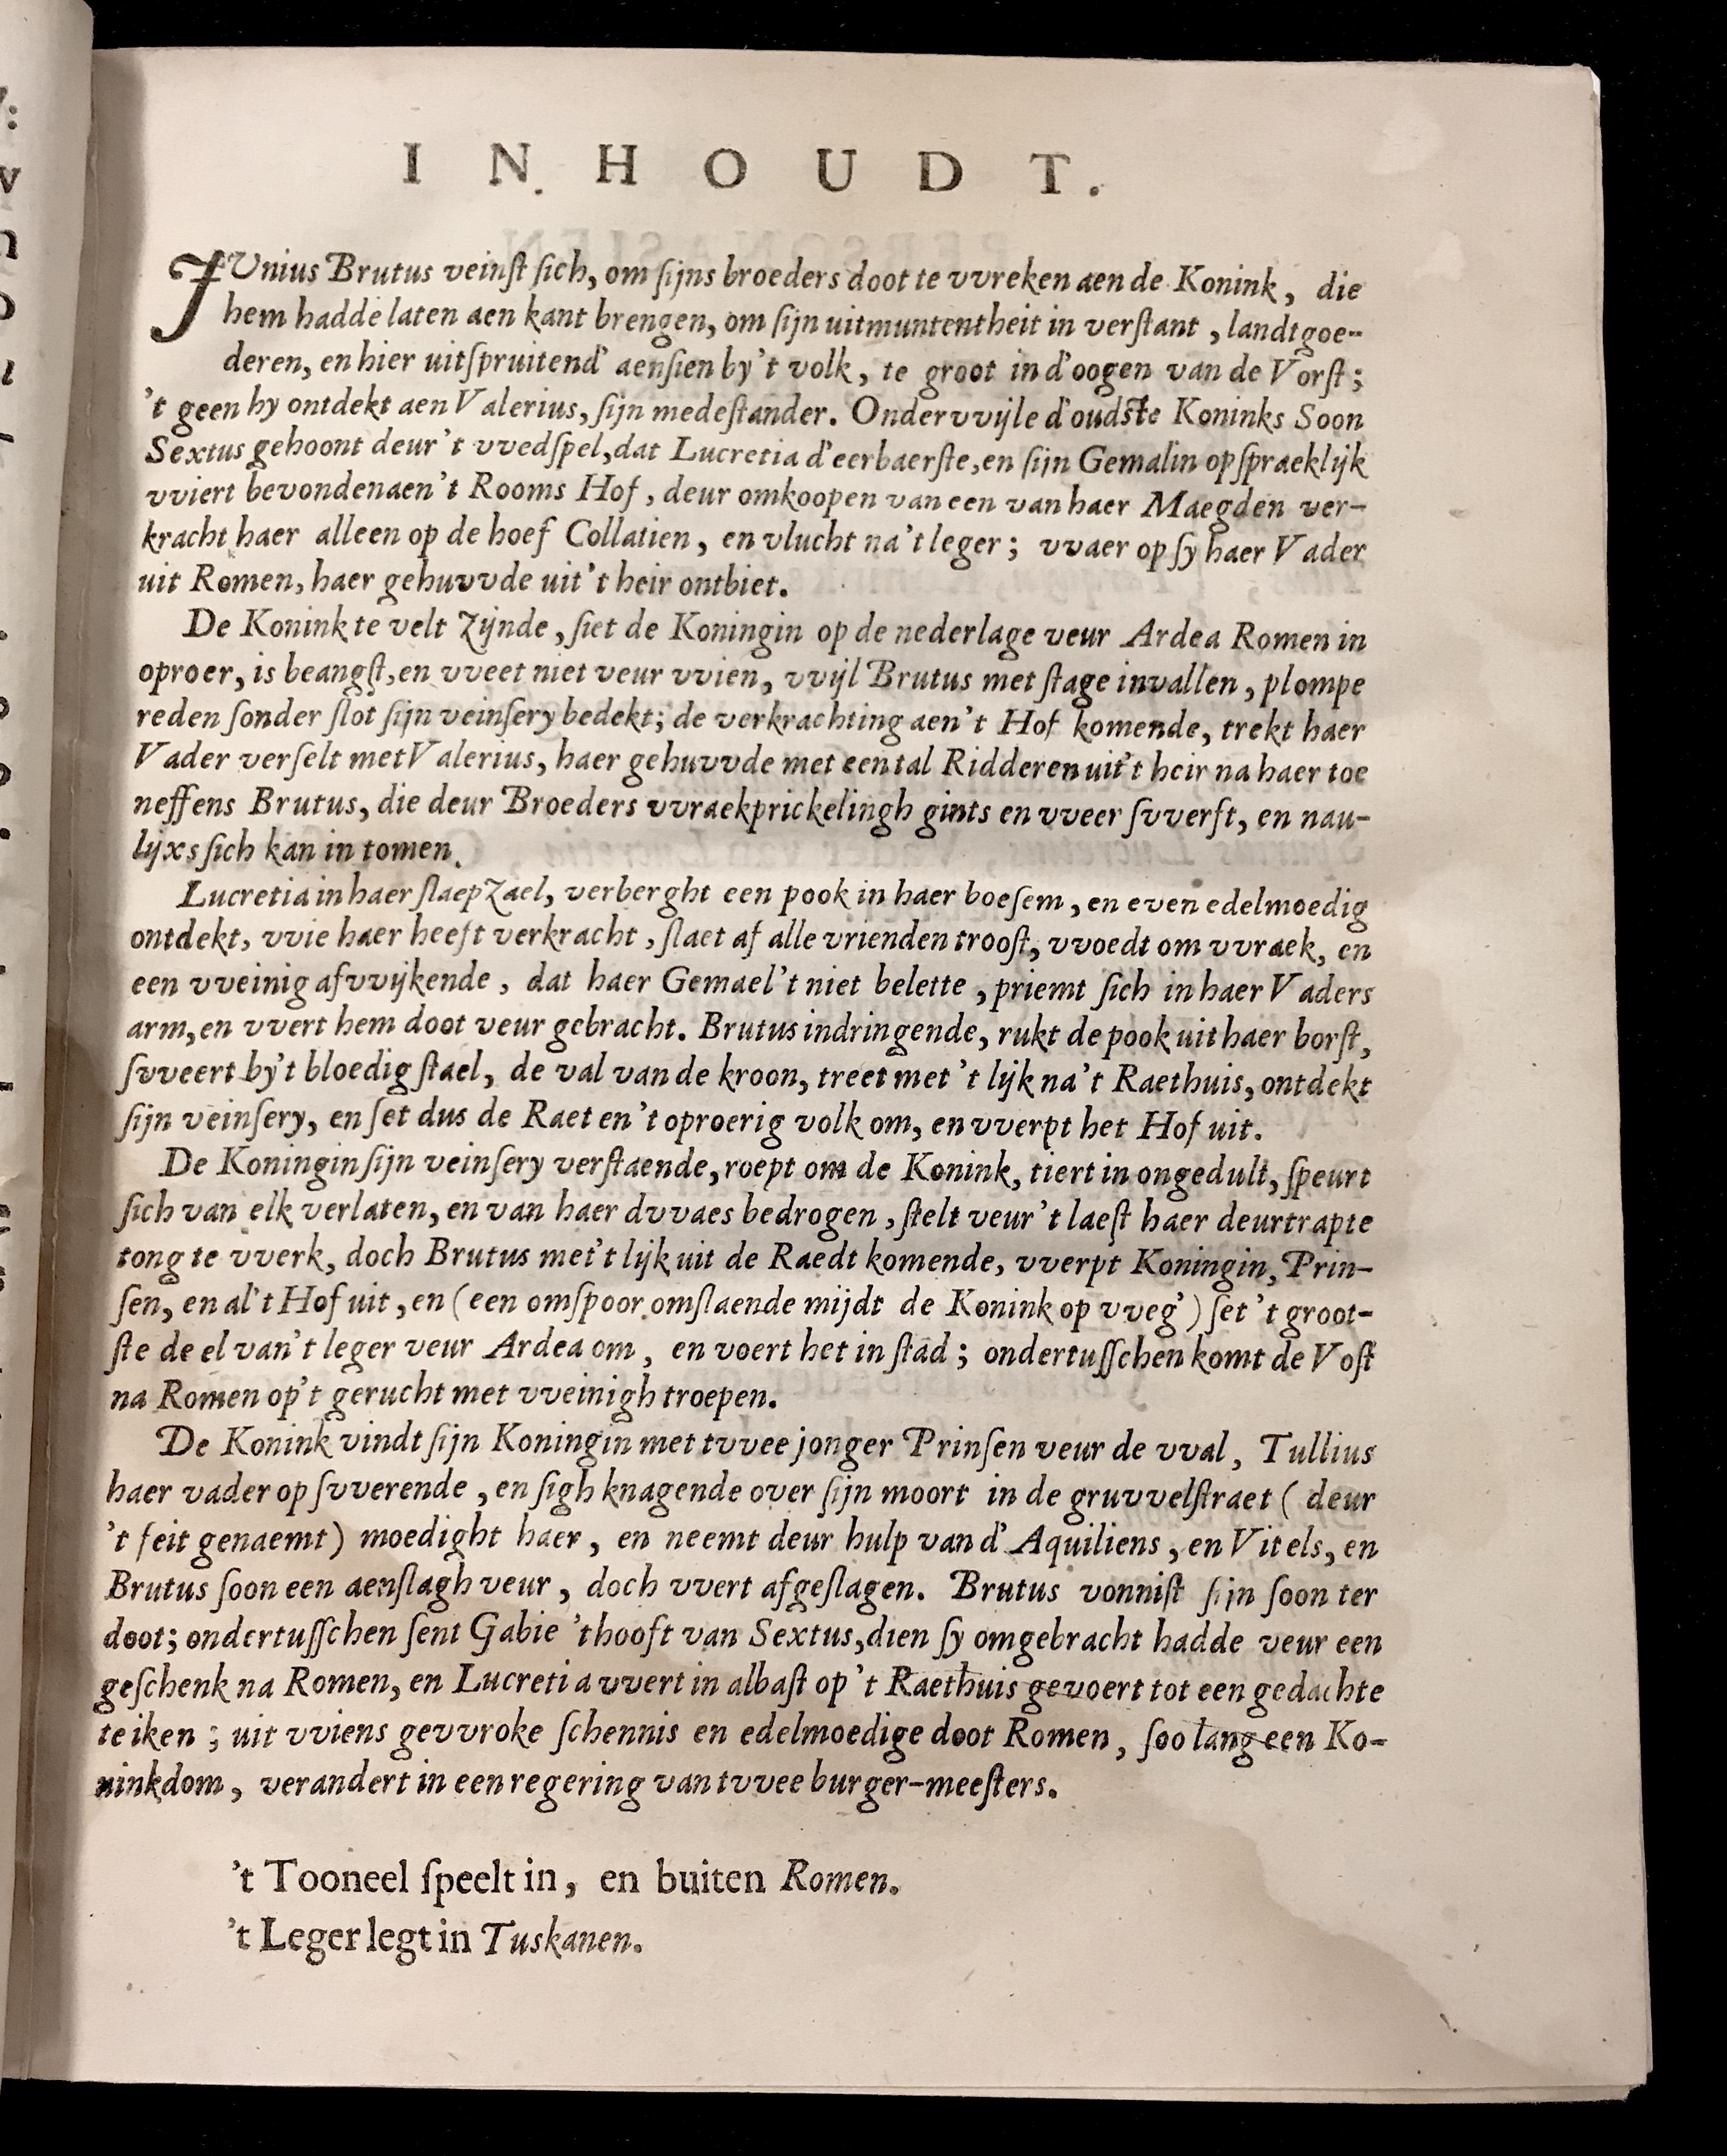 INHOUDT.
JUnius Brutus veinſt ſich, om ſijns broeders doot te vvreken aen de Konink, die
hem hadde laten aen kant brengen, om ſijn uitmuntentheit in verſtant, landtgoe-
deren, en hier uitſpruitend' aenſien by't volk, te groot in d'oogen van de Vorſt;
't geen hy ontdekt aen Valerius, ſijn medeſtander. Ondervvijle d'oudſte Koninks Soon
Sextus gehoont deur't vvedſpel, dat Lucretia d'eerbaerſte, en ſijn Gemalin opſpraeklijk
vviert bevonden aen't Rooms Hof, deur omkoopen van een van haer Maegden ver-
kracht haer alleen op de hoef Collatien, en vlucht na't leger; vvaer op ſy haer Vader
uit Romen, haer gehuvvde uit't heir ontbiet.
De Konink te velt zijnde, ſiet de Koningin op de nederlage veur Ardea Romen in
oproer, is beangſt, en vveet niet veur vvien, vvijl Brutus met ſtage invallen, plompe
reden ſonder ſlot ſijn veinſery bedekt; de verkrachting aen't Hof komende, trekt haer
Vader verſelt met Valerius, haer gehuvvde met een tal Ridderen uit't heir na haer toe
neffens Brutus, die deur Broeders vvraekprickelingh gints en vveer ſvverft, en nau-
lijxs ſich kan in tomen.
Lucretia in haer ſlaepzael, verberght een pook in haer boeſem, en even edelmoedig
ontdekt, vvie haer heeft verkracht, ſlaet af alle vrienden trooſt, vvoedt om vvraek, en
een vveinig afvvijkende, dat haer Gemael't niet belette, priemt ſich in haer Vaders
arm, en vvert hem doot veur gebracht. Brutus indringende, rukt de pook uit haer borſt,
ſvveert by't bloedig ſtael, de val van de kroon, treet met 't lijk na't Raethuis, ontdekt
ſijn veinſery, en ſet dus de Raet en't oproerig volk om, en vverpt het Hof uit.
De Koningin ſijn veinſery verſtaende, roept om de Konink, tiert in ongedult, ſpeurt
ſich van elk verlaten, en van haer dvvaes bedrogen, ſtelt veur't laeſt haer deurtrapte
tong te vverk, doch Brutus met't lijk uit de Raedt komende, vverpt Koningin, Prin-
ſen, en al't Hof uit, en (een omſpoor omſlaende mijdt de Konink op vveg') ſet 't groot-
ſte deel van't leger veur Ardea om, en voert het in ſtad; ondertuſſchen komt de Voſt
na Romen op't gerucht met vveinigh troepen.
De Konink vindt ſijn Koningin met tvvee jonger Prinſen veur de vval, Tullius
haer vader op ſvverende, en ſigh knagende over ſijn moort in de gruvvelſtraet (deur
't feit genaemt) moedight haer, en neemt deur hulp van d' Aquiliens, en Vitels, en
Brutus ſoon een aenſlagh veur, doch vvert afgeſlagen. Brutus vonniſt ſijn ſoon ter
doot; ondertuſſchen ſent Gabie 't hooft van Sextus, dien ſy omgebracht hadde veur een
geſchenk na Romen, en Lucretia vvert in albaſt op 't Raethuis gevoert tot een gedachte
teiken; uit vviens gevvroke ſchennis en edelmoedige doot Romen, ſoo lang een Ko-
ninkdom, verandert in een regering van tvvee burger-meeſters.
't Tooneel ſpeelt in, en buiten Romen.
't Leger legt in Tuskanen.